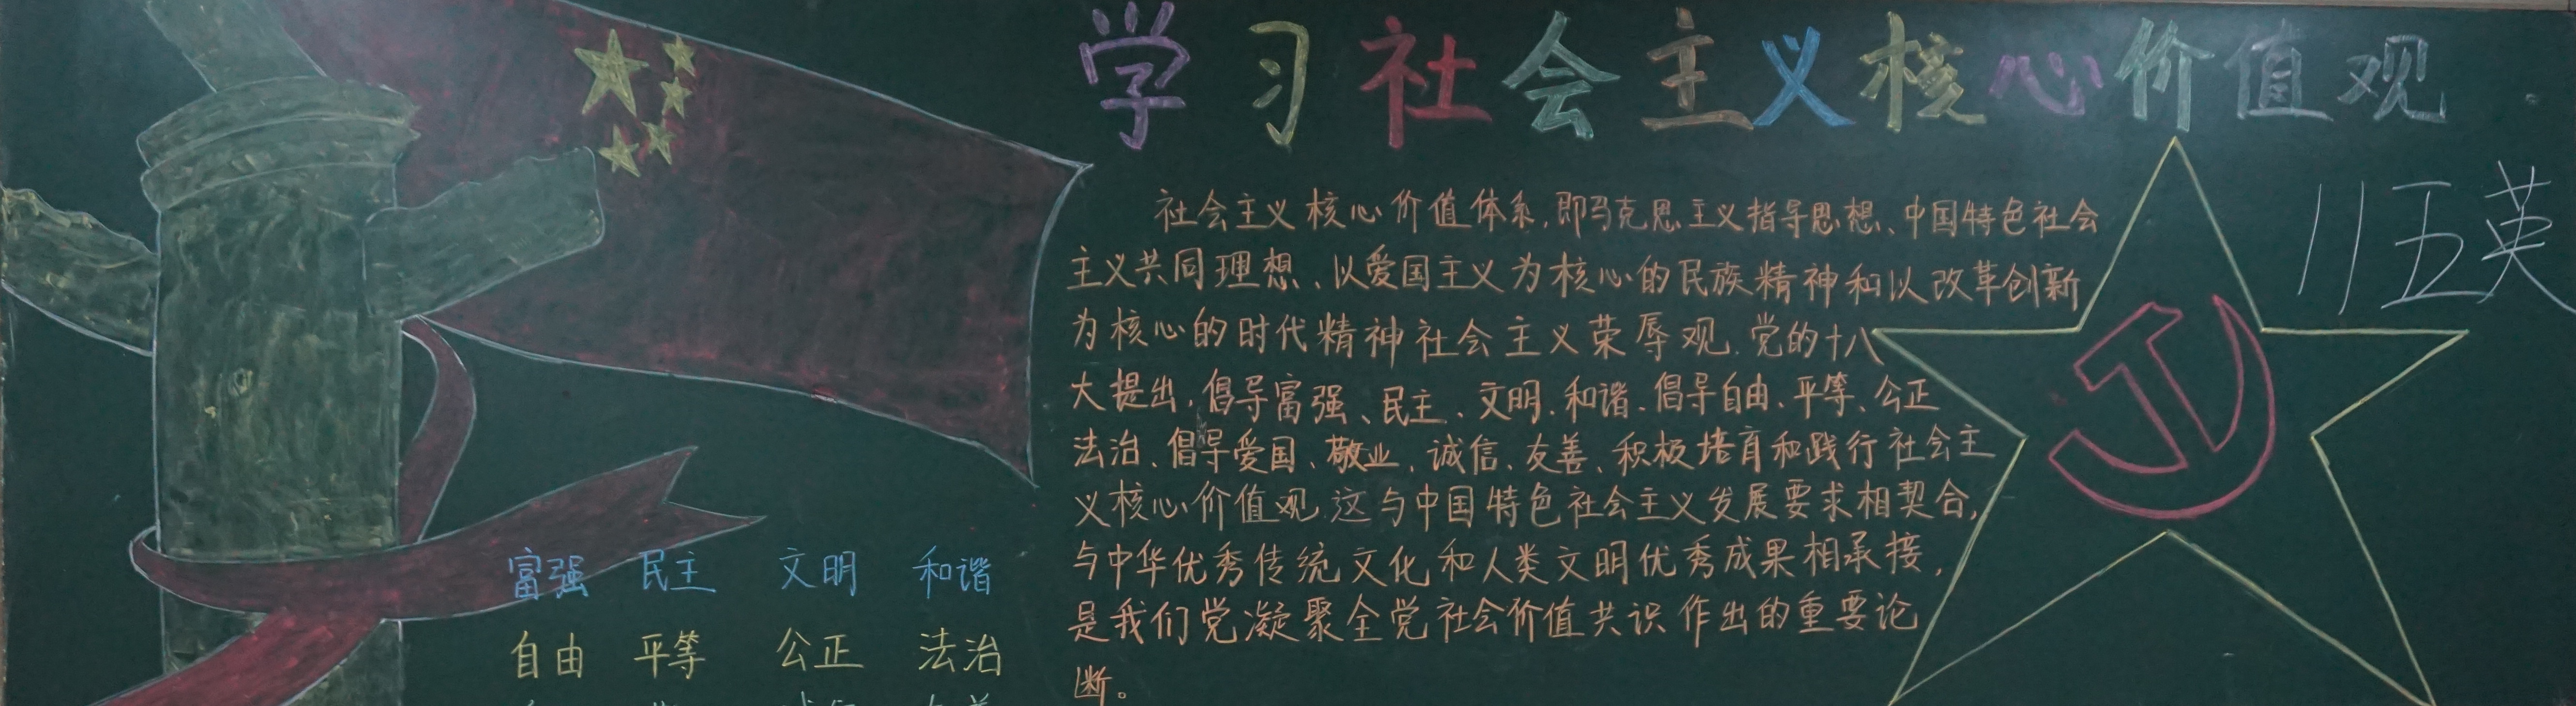 学习社会主义核心价值观
社会主义核心价值体系,即马克思主义指导思想、中国特色社会
主义共同理想、以爱国主义为核心的民族精神和以改革创新
为核心的时代精神社会主义荣辱观.党的十八
大提出,倡导富强、民主、文明、和谐、倡导自由、平等、公正
法治、倡导爱国、敬业、诚信、友善、积极培育和践行社会主
义核心价值观.这与中国特色社会主义发展要求相契合,
与中华优秀传统文化和人类文明优秀成果相承接,
是我们党凝聚全党社会价值共识作出的重要论
断。
富强 民主 文明 和谐
自由 平等 公正 法治
五英